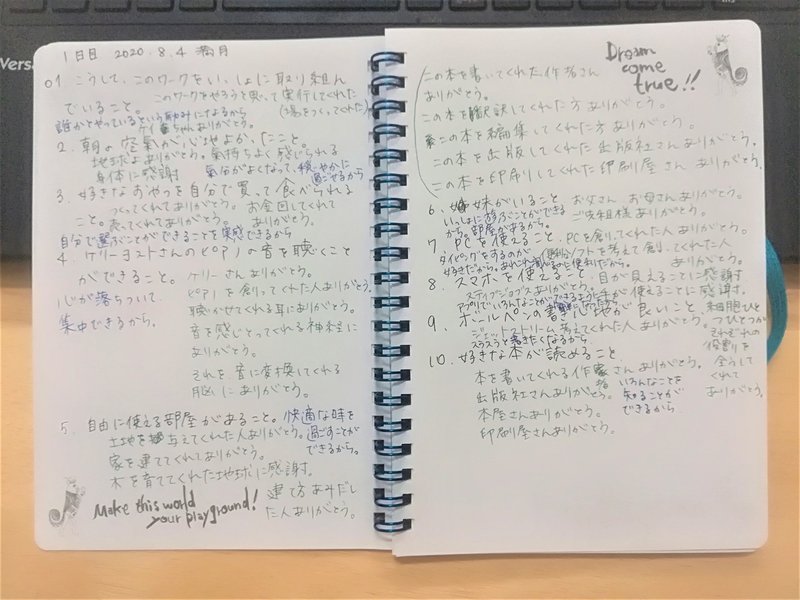 Versa
1日目 2020.8.4 満月
01. こうして、このワークをいっしょに取り組ん
でいること。 このワークをやろうと思って実行してくれた
(場をつくってくれた)
誰かとやっているという励みになるから
ケイ ちゃんありがとう。
2. 朝の空気が心地よかったこと。
地球よありがとう。気持ちよく感じられる
身体に感謝 気分がよくなって、穏やかに
過ごせるから
3. 好きなおやつを自分で買って食べられる
つくってくれてありがとう。お金回してくれて
こと。売ってくれてありがとう。 ありがとう。
自分で選ぶことができることを実感できるから
4. ケリーヨストさんのピアノの音を聴くこと
ができること。 ケリーさんありがとう。
ピアノを創ってくれた人ありがとう。
心が落ちついて、
聴かせてくれる耳にありがとう。
集中できるから。
音を感じとってくれる神経に
ありがとう。
それを、音に変換してくれる
脳にありがとう。
5. 自由に使える部屋があること。快適な時を
土地を与えてくれた人ありがとう。過ごすことが
家を建ててくれてありがとう。 できるから。
木を育ててくれた地球に感謝。
建て方あみだし
た人ありがとう。
Make this world
your playground!
Dream
come
true!!
この本を書いてくれた作者さん
ありがとう。
この本を翻訳してくれた方ありがとう。
この本を編集してくれた方ありがとう。
この本を出版してくれた出版社さんありがとう。
この本を印刷してくれた印刷屋さんありがとう。
6. 姉妹がいること お父さん、お母さんありがとう。
いっしょに遊ぶことができる ご先祖様ありがとう。
から。部屋があるから。
7. PCを使えること、PCを創ってくれた人ありがとう。
タイピングをするのが 便利なソフトを考えて創ってくれた人
好きだから。 ありがとう。
8. スマホを使えること 目が見えることに感謝
スティーブジョブズありがとう。 手が使えることに感謝。
アプリでいろんなことができるように
9. ボールペンの書き心地が良いこと、細胞ひと
ジェットストリーム考えてくれた人ありがとう。つひとつが
スラスラと書きたくなるから それぞれの
役割を
10. 好きな本が読めること 全うして
くれて
ありがとう。
本を書いてくれる作家さんありがとう。
出版社さんありがとう。 いろんなことを
本屋さんありがとう。 知ることが
印刷屋さんありがとう。 できるから。